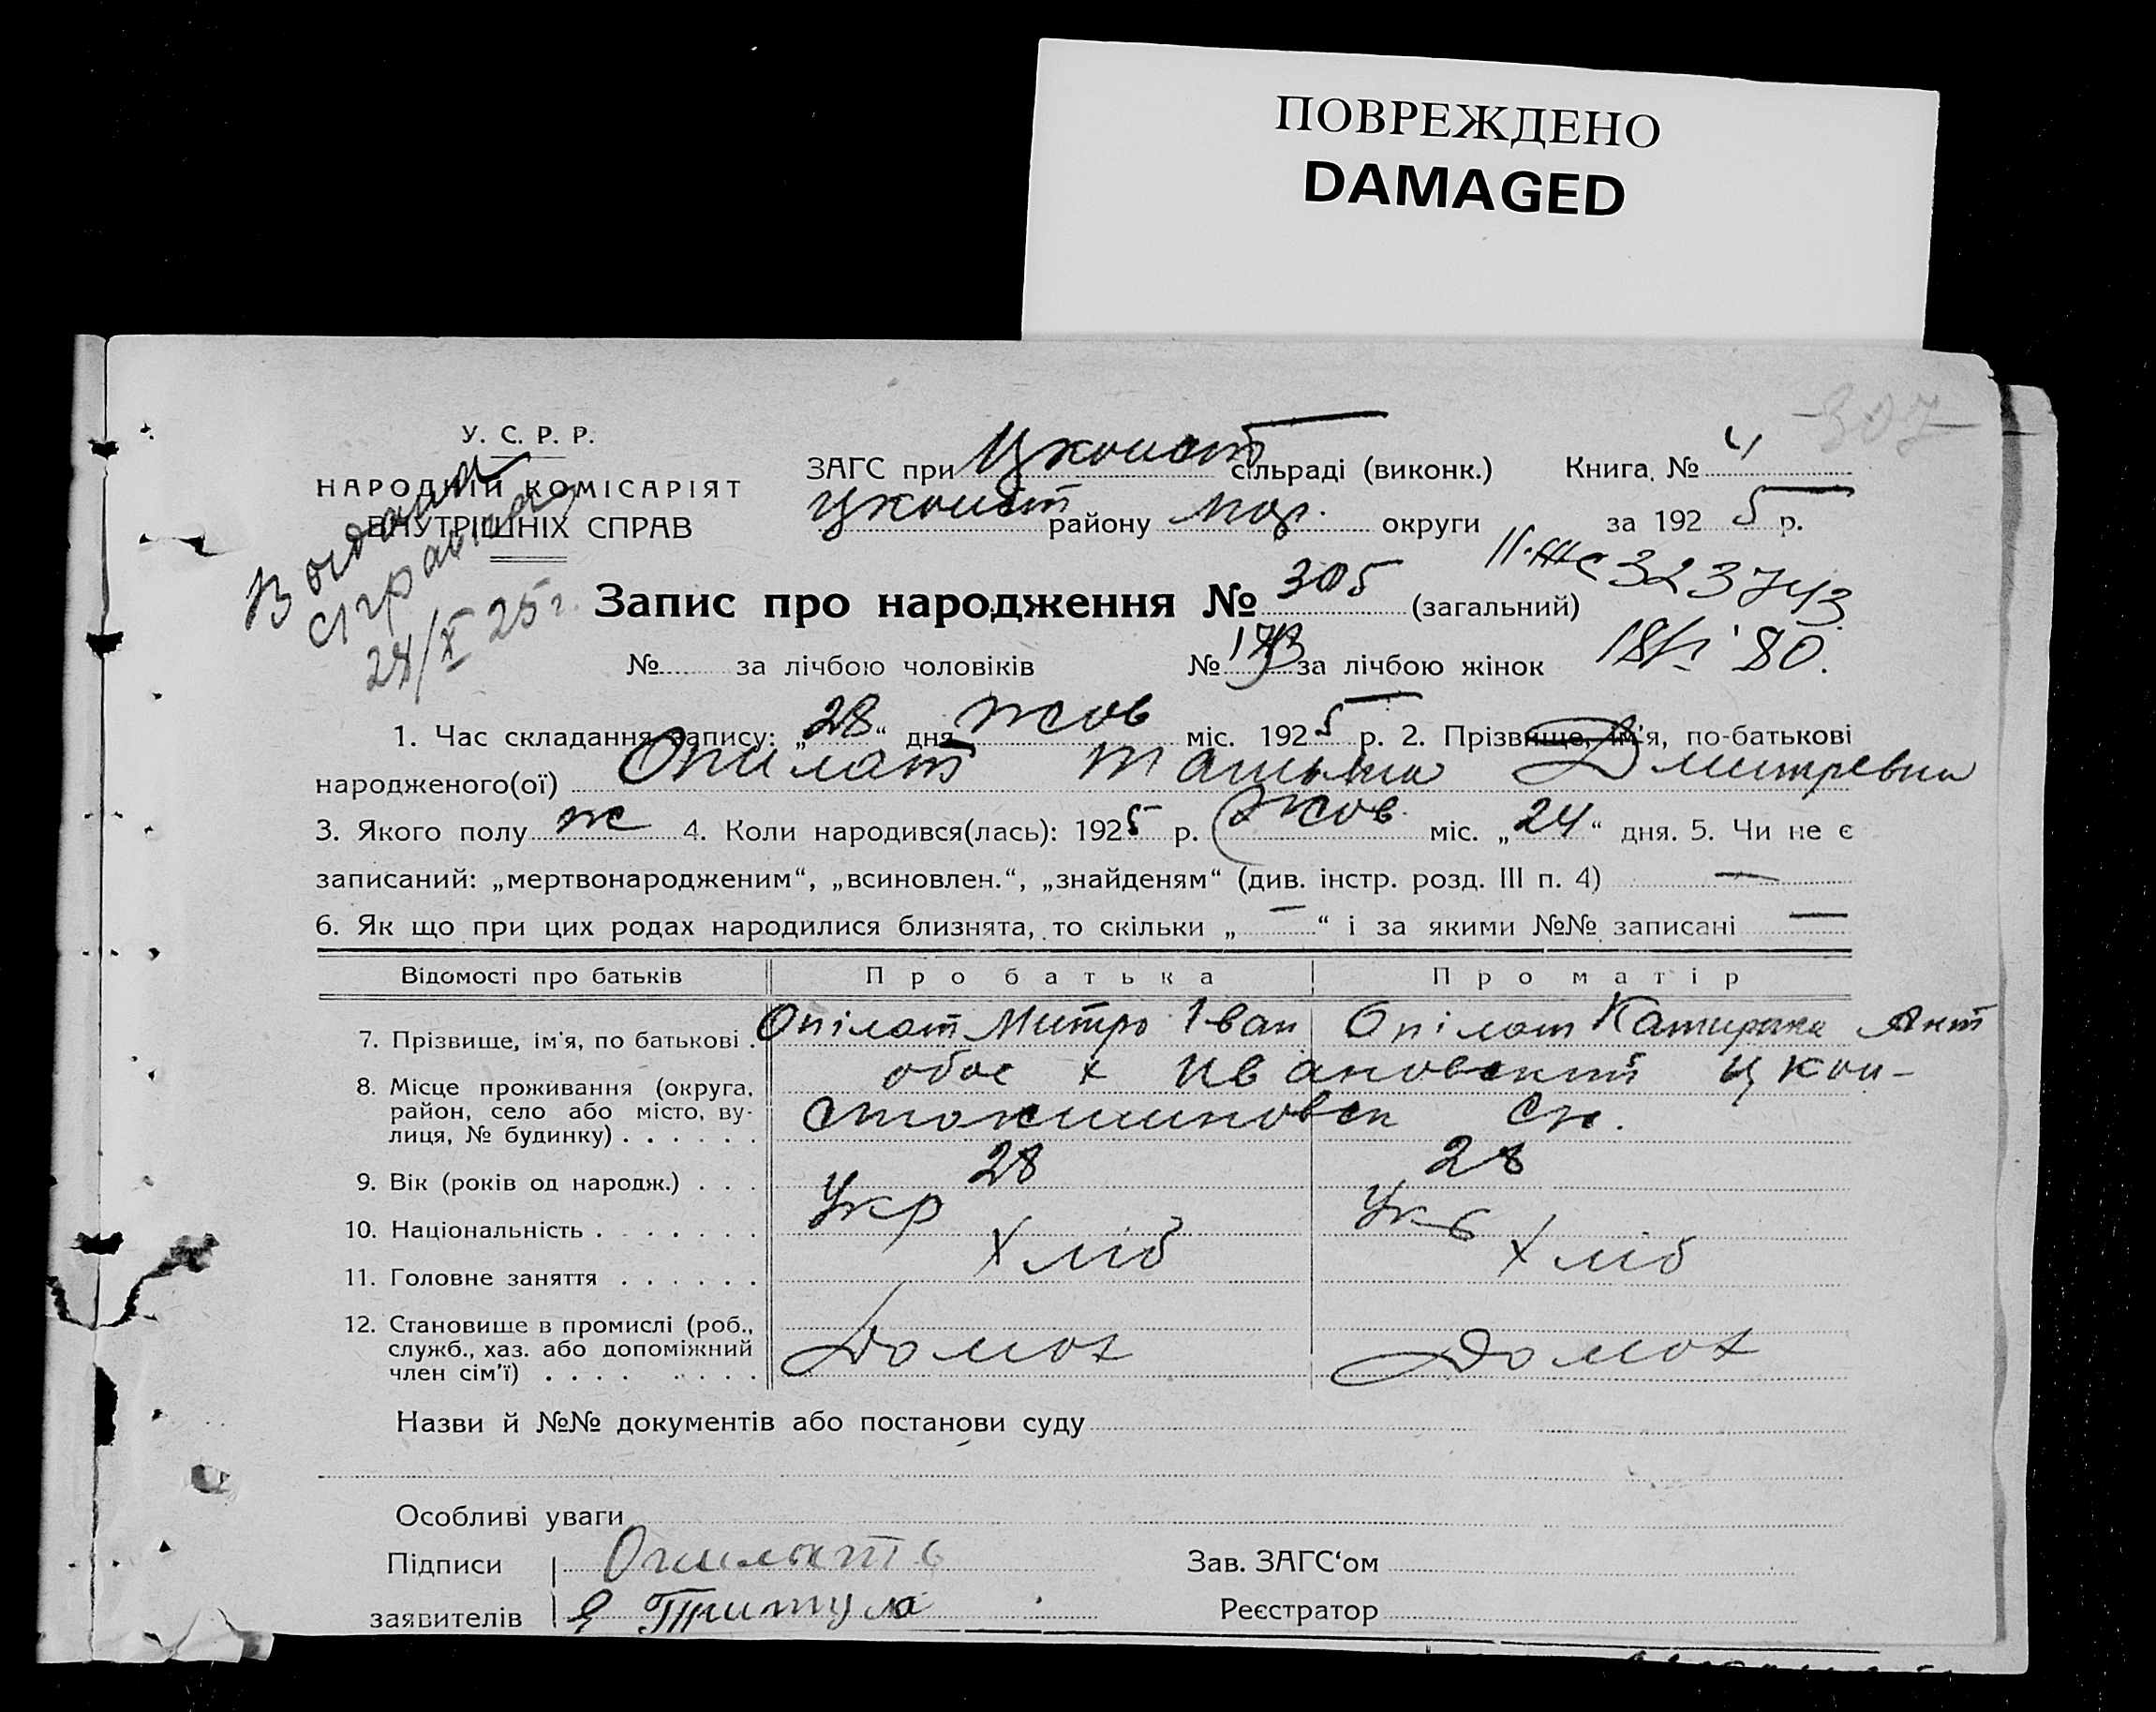 ПОВРЕЖДЕНО
DAMAGED
307
У. С. Р. Р.
НАРОДНІЙ КОМІСАРІЯТ
ВНУТРІШНІХ СПРАВ
Видана
справка
28/X 25 г.
ЗАГС при Цконст сільраді (виконк.) Книга № 4
Цконст району округи за 1925 р.
323743
Запис про народження № 305 (загальний)
№ за лічбою чоловіків № за лічбою жінок
1. Час складання запису: „28“ дня жов міс. 1925 р. 2. Прізвище, ім'я, по-батькові
народженого(ої) Опилат Татьяна Дмитревна
3. Якого полу ж 4. Коли народився(лась): 1925 р. Жов. міс. „24“ дня. 5. Чи не є
записаний: „мертвонародженим“, „всиновлен.“, „знайденям“ (див. інстр. розд. III п. 4) —
6. Як що при цих родах народилися близнята, то скільки „—“ і за якими №№ записані —
Відомості про батьків Про батька Про матір
7. Прізвище, ім'я, по батькові . Опілат Митро Іван Опілат Катирина Ант
8. Місце проживання (округа, район, село або місто, вулиця, № будинку) . . . . . . обоє х Ивановский Цкон-
стантиновск
9. Вік (років од народж.) . . . 28 28
10. Національність . . . . . . . Укр Укр
11. Головне заняття . . . . . . Хліб Хліб
12. Становище в промислі (роб., служб., хаз. або допоміжний член сім'ї) . . . . . . . . Домох Домох
Назви й №№ документів або постанови суду
Особливі уваги
Підписи Зав. ЗАГС'ом
заявителів Я Притула Реєстратор